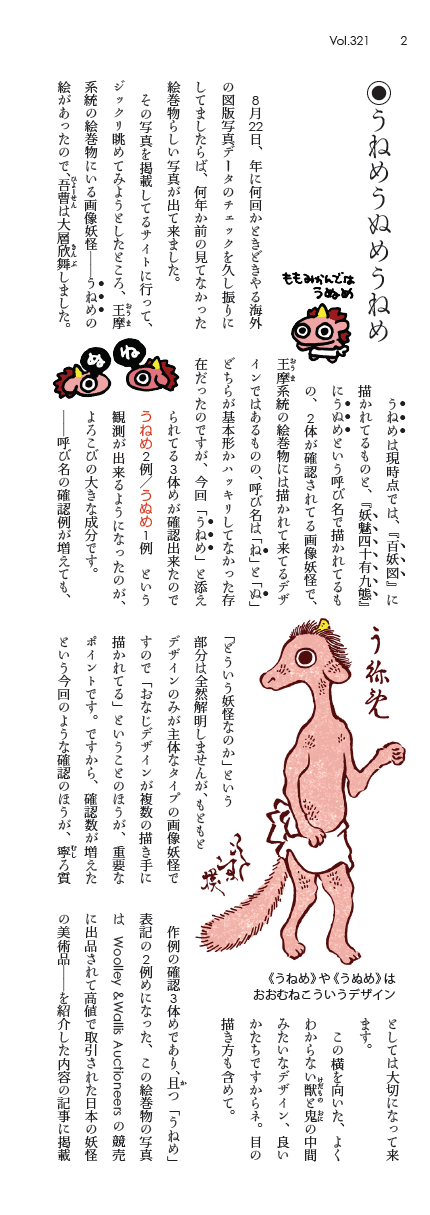 Vol.321 2
◉うねめうぬめうねめ
8月22日、年に何回かときどきやる海外
の図版写真データのチェックを久し振りに
してましたらば、何年か前の見てなかった
絵巻物らしい写真が出て来ました。
その写真を掲載してるサイトに行って、
ジックリ眺めてみようとしたところ、王摩(おうま)
系統の絵巻物にいる画像妖怪――うねめの
絵があったので、吾曹(ひょーせん)は大層欣舞(きんぶ)しました。
ももみかんでは
うぬめ
うねめは現時点では、『百妖図』に
描かれてるものと、『妖魅四十有九態』
にうぬめという呼び名で描かれてるも
の、2体が確認されてる画像妖怪で、
王摩(おうま)系統の絵巻物には描かれて来てるデザ
インではあるものの、呼び名は「ね」と「ぬ」
どちらが基本形かハッキリしてなかった存
在だったのですが、今回「うねめ」と添え
ね
ぬ
られてる3体めが確認出来たので
うねめ2例／うぬめ1例　という
観測が出来るようになったのが、
よろこびの大きな成分です。
――呼び名の確認例が増えても、
う弥免
「どういう妖怪なのか」という
部分は全然解明しませんが、もともと
デザインのみが主体なタイプの画像妖怪で
すので「おなじデザインが複数の描き手に
描かれてる」ということのほうが、重要な
ポイントです。ですから、確認数が増えた
という今回のような確認のほうが、寧(むし)ろ質
《うねめ》や《うぬめ》は
おおむねこういうデザイン
としては大切になって来
ます。
この横を向いた、よく
わからない獣(けだもの)と鬼(おに)の中間
みたいなデザイン、良い
かたちですからネ。目の
描き方も含めて。
作例の確認3体めであり、且(か)つ「うねめ」
表記の2例めになった、この絵巻物の写真
は　Woolley &Wallis Auctioneers の競売
に出品されて高値で取引された日本の妖怪
の美術品――を紹介した内容の記事に掲載